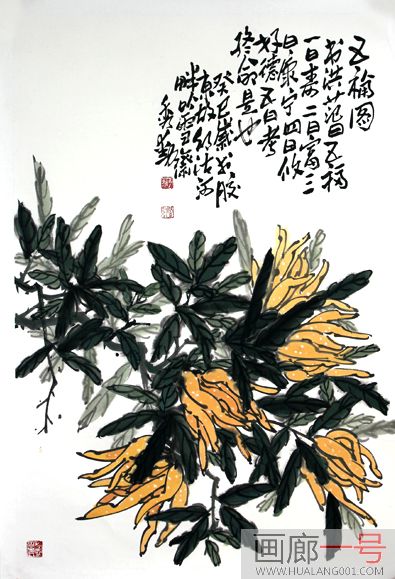 五福图
书洪范曰五福
一曰寿二曰富三
曰康宁四曰攸
好德五曰考
终命是也
癸巳岁于胶
沽河
畔吟雪斋
画廊一号
WWW.HUALANG001.COM